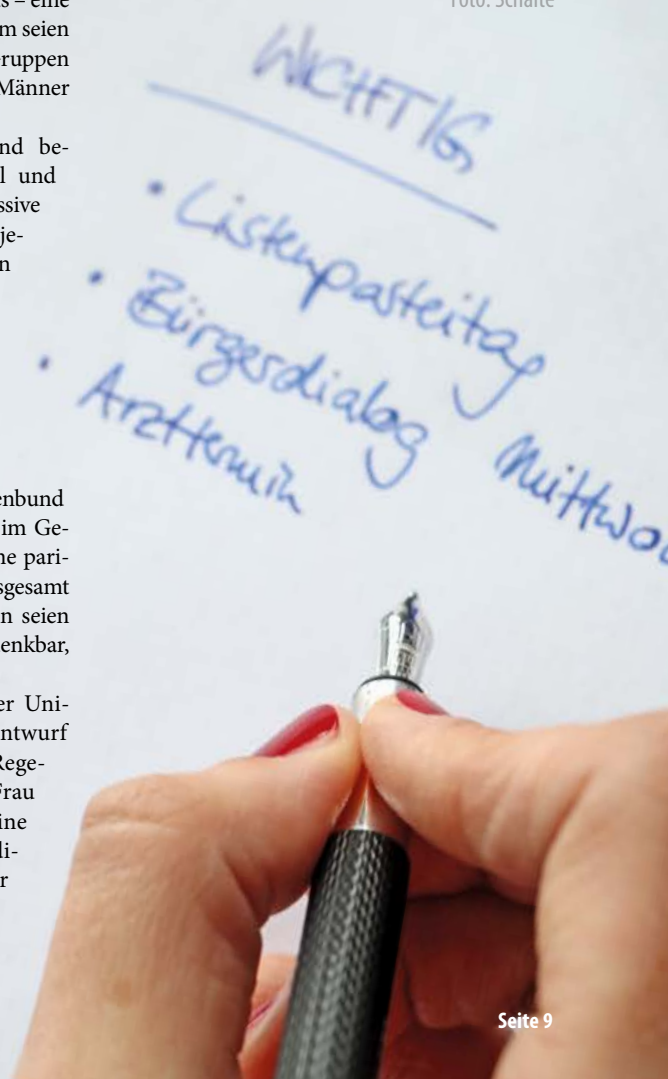 s – eine
m seien
ruppen
Männer
nd be-
l und
ssive
je-
n
enbund
im Ge-
ne pari-
sgesamt
n seien
enkbar,
er Uni-
ntwurf
Rege-
Frau
ine
di-
r
Foto: Schälte
WICHTIG
• Listenparteitag
• Bürgerdialog Mittwoc
• Arzttermin
Seite 9